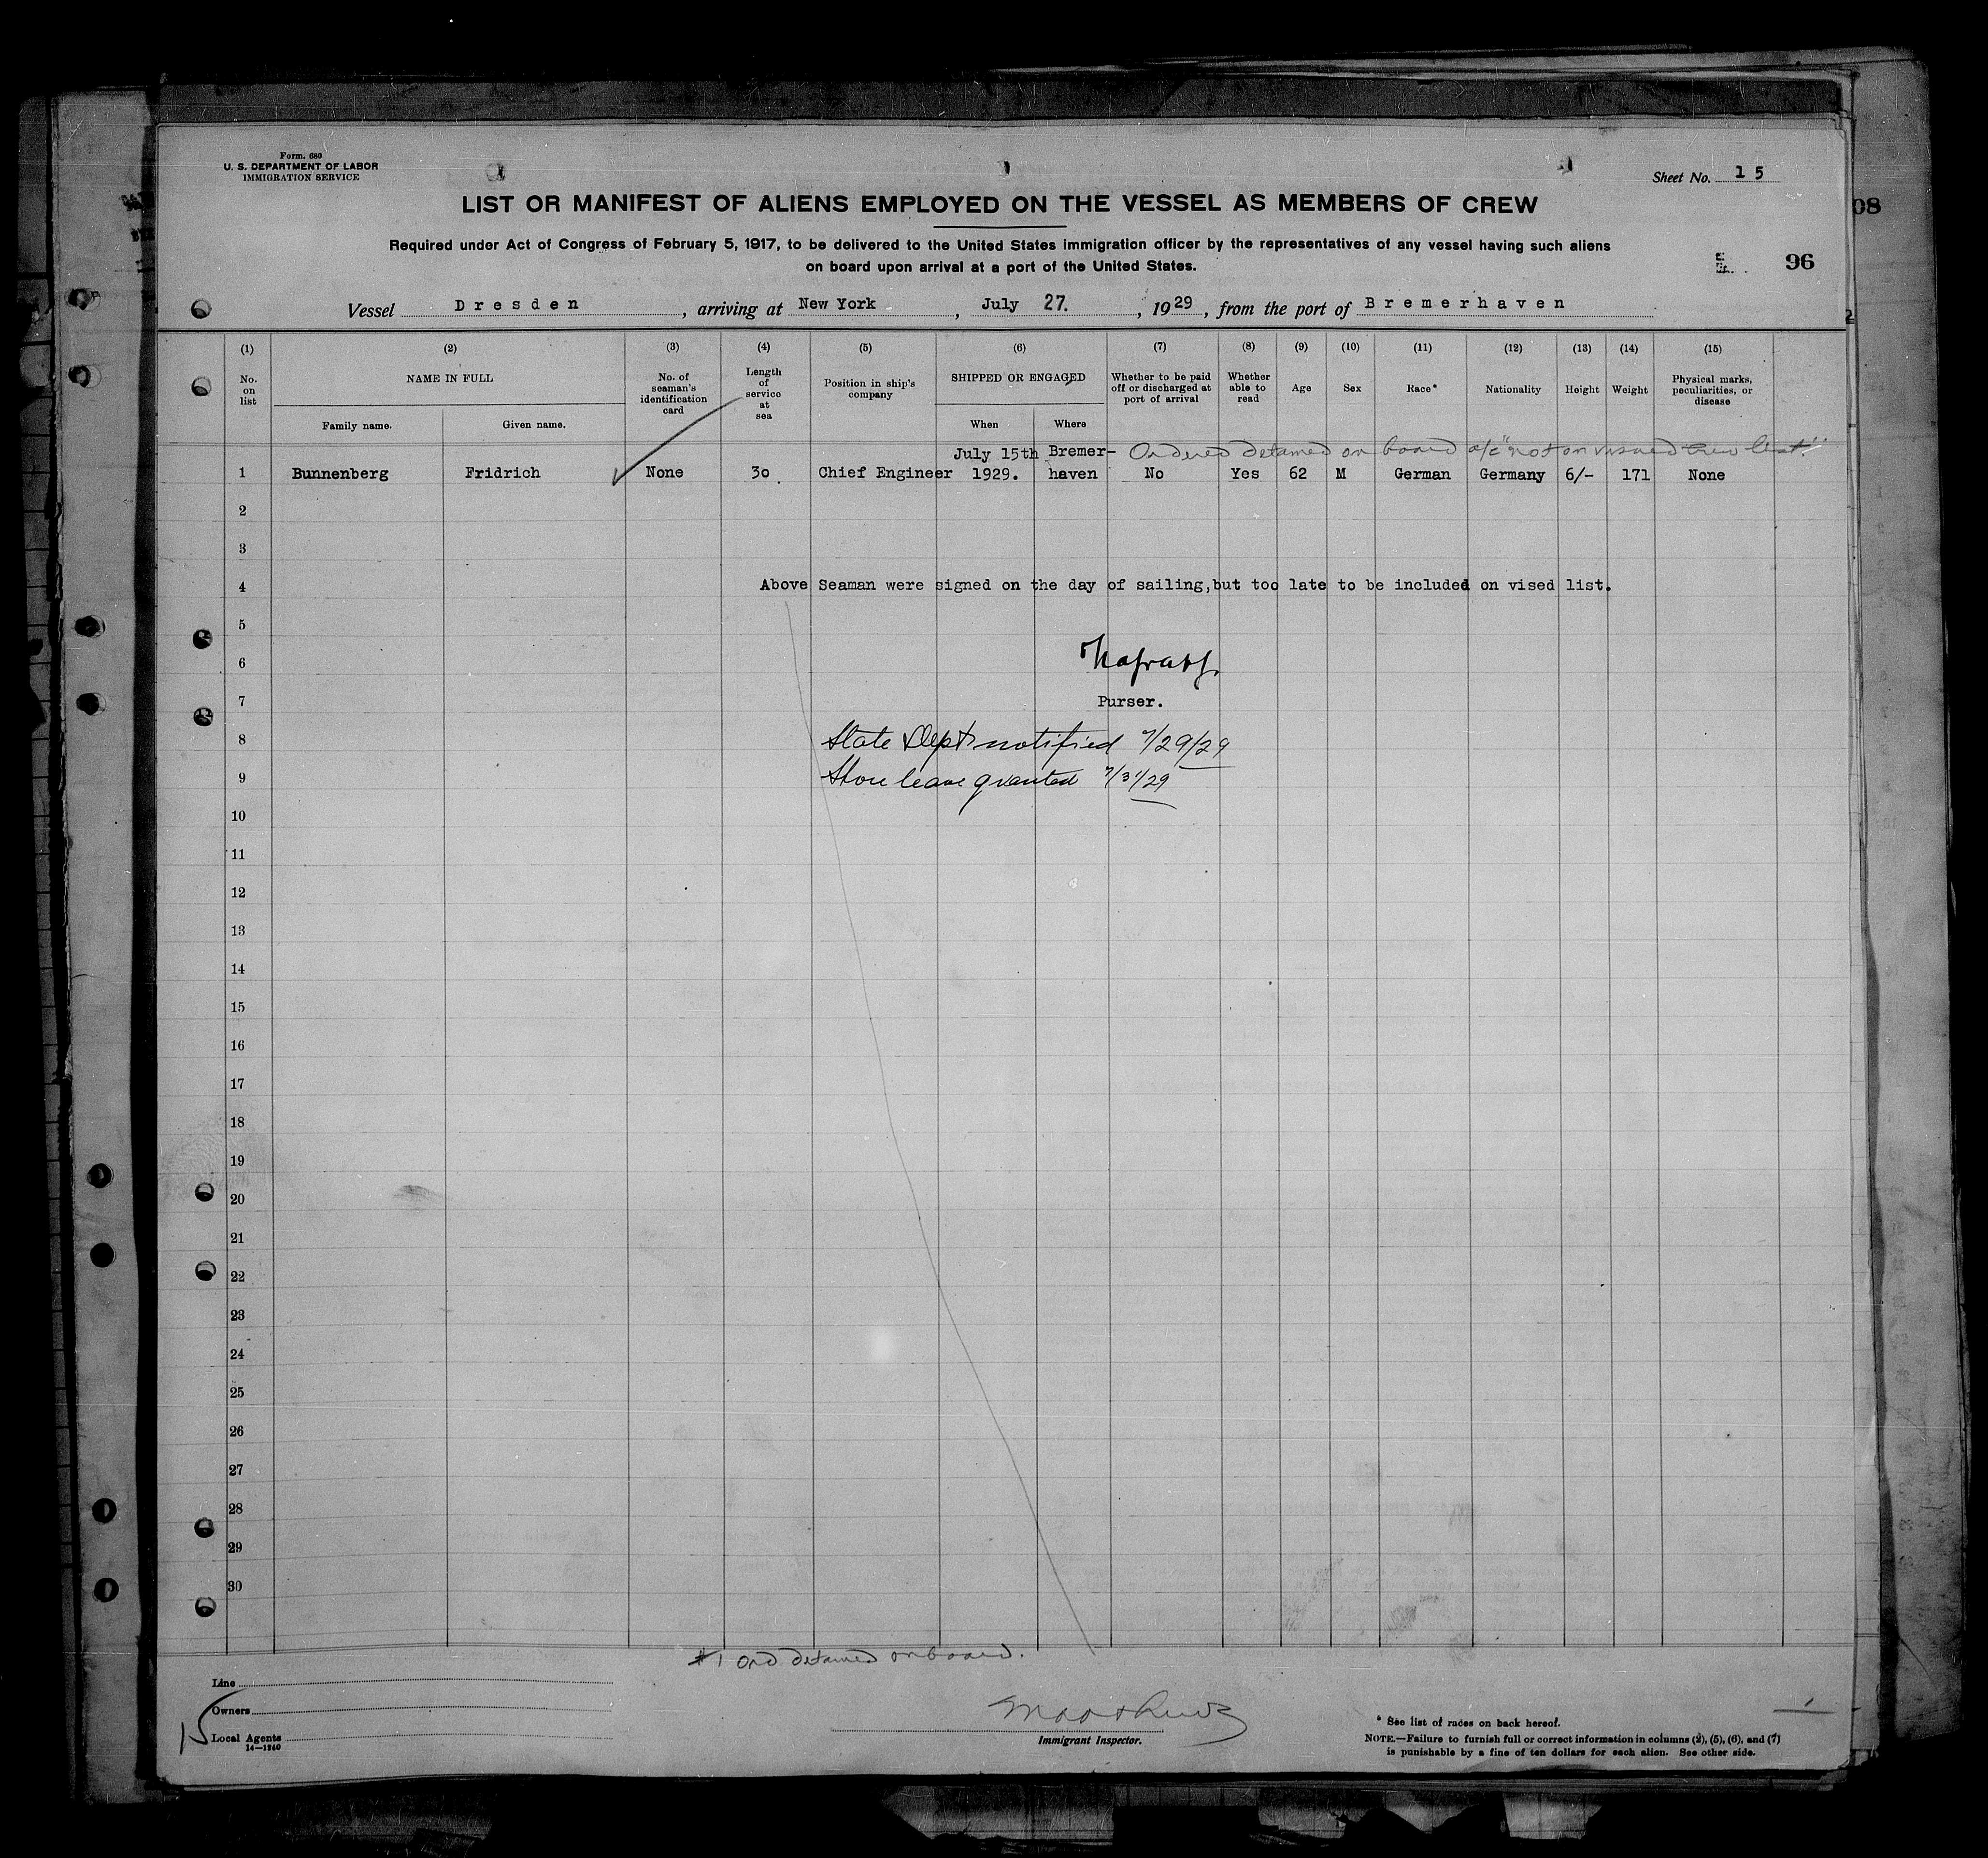 Form. 680
U. S. DEPARTMENT OF LABOR
IMMIGRATION SERVICE
Sheet No. 15
LIST OR MANIFEST OF ALIENS EMPLOYED ON THE VESSEL AS MEMBERS OF CREW
Required under Act of Congress of February 5, 1917, to be delivered to the United States immigration officer by the representatives of any vessel having such aliens
on board upon arrival at a port of the United States.
08
96
Vessel Dresden, arriving at New York, July 27., 1929, from the port of Bremerhaven
(1) (2) (3) (4) (5) (6) (7) (8) (9) (10) (11) (12) (13) (14) (15)
No. on list
NAME IN FULL
Family name.
Given name.
No. of seaman's identification card
Length of service at sea
Position in ship's company
SHIPPED OR ENGAGED
When
Where
Whether to be paid off or discharged at port of arrival
Whether able to read
Age
Sex
Race*
Nationality
Height
Weight
Physical marks, peculiarities, or disease
Ordered detained on board a/c "not on visaed crew list."
1 Bunnenberg Fridrich None 30 Chief Engineer July 15th 1929. Bremer-haven No Yes 62 M German Germany 6/- 171 None
2
3
4 Above Seaman were signed on the day of sailing,but too late to be included on vised list.
5
6
7 Purser.
8 State Dept notified 7/29/29
9 Shore leave granted 7/31/29
10
11
12
13
14
15
16
17
18
19
20
21
22
23
24
25
26
27
28
29
30
#1 Ord detained on board.
Line
Owners
Local Agents
14—1240
15
Immigrant Inspector.
* See list of races on back hereof.
NOTE.—Failure to furnish full or correct information in columns (2), (5), (6), and (7)
is punishable by a fine of ten dollars for each alien. See other side.